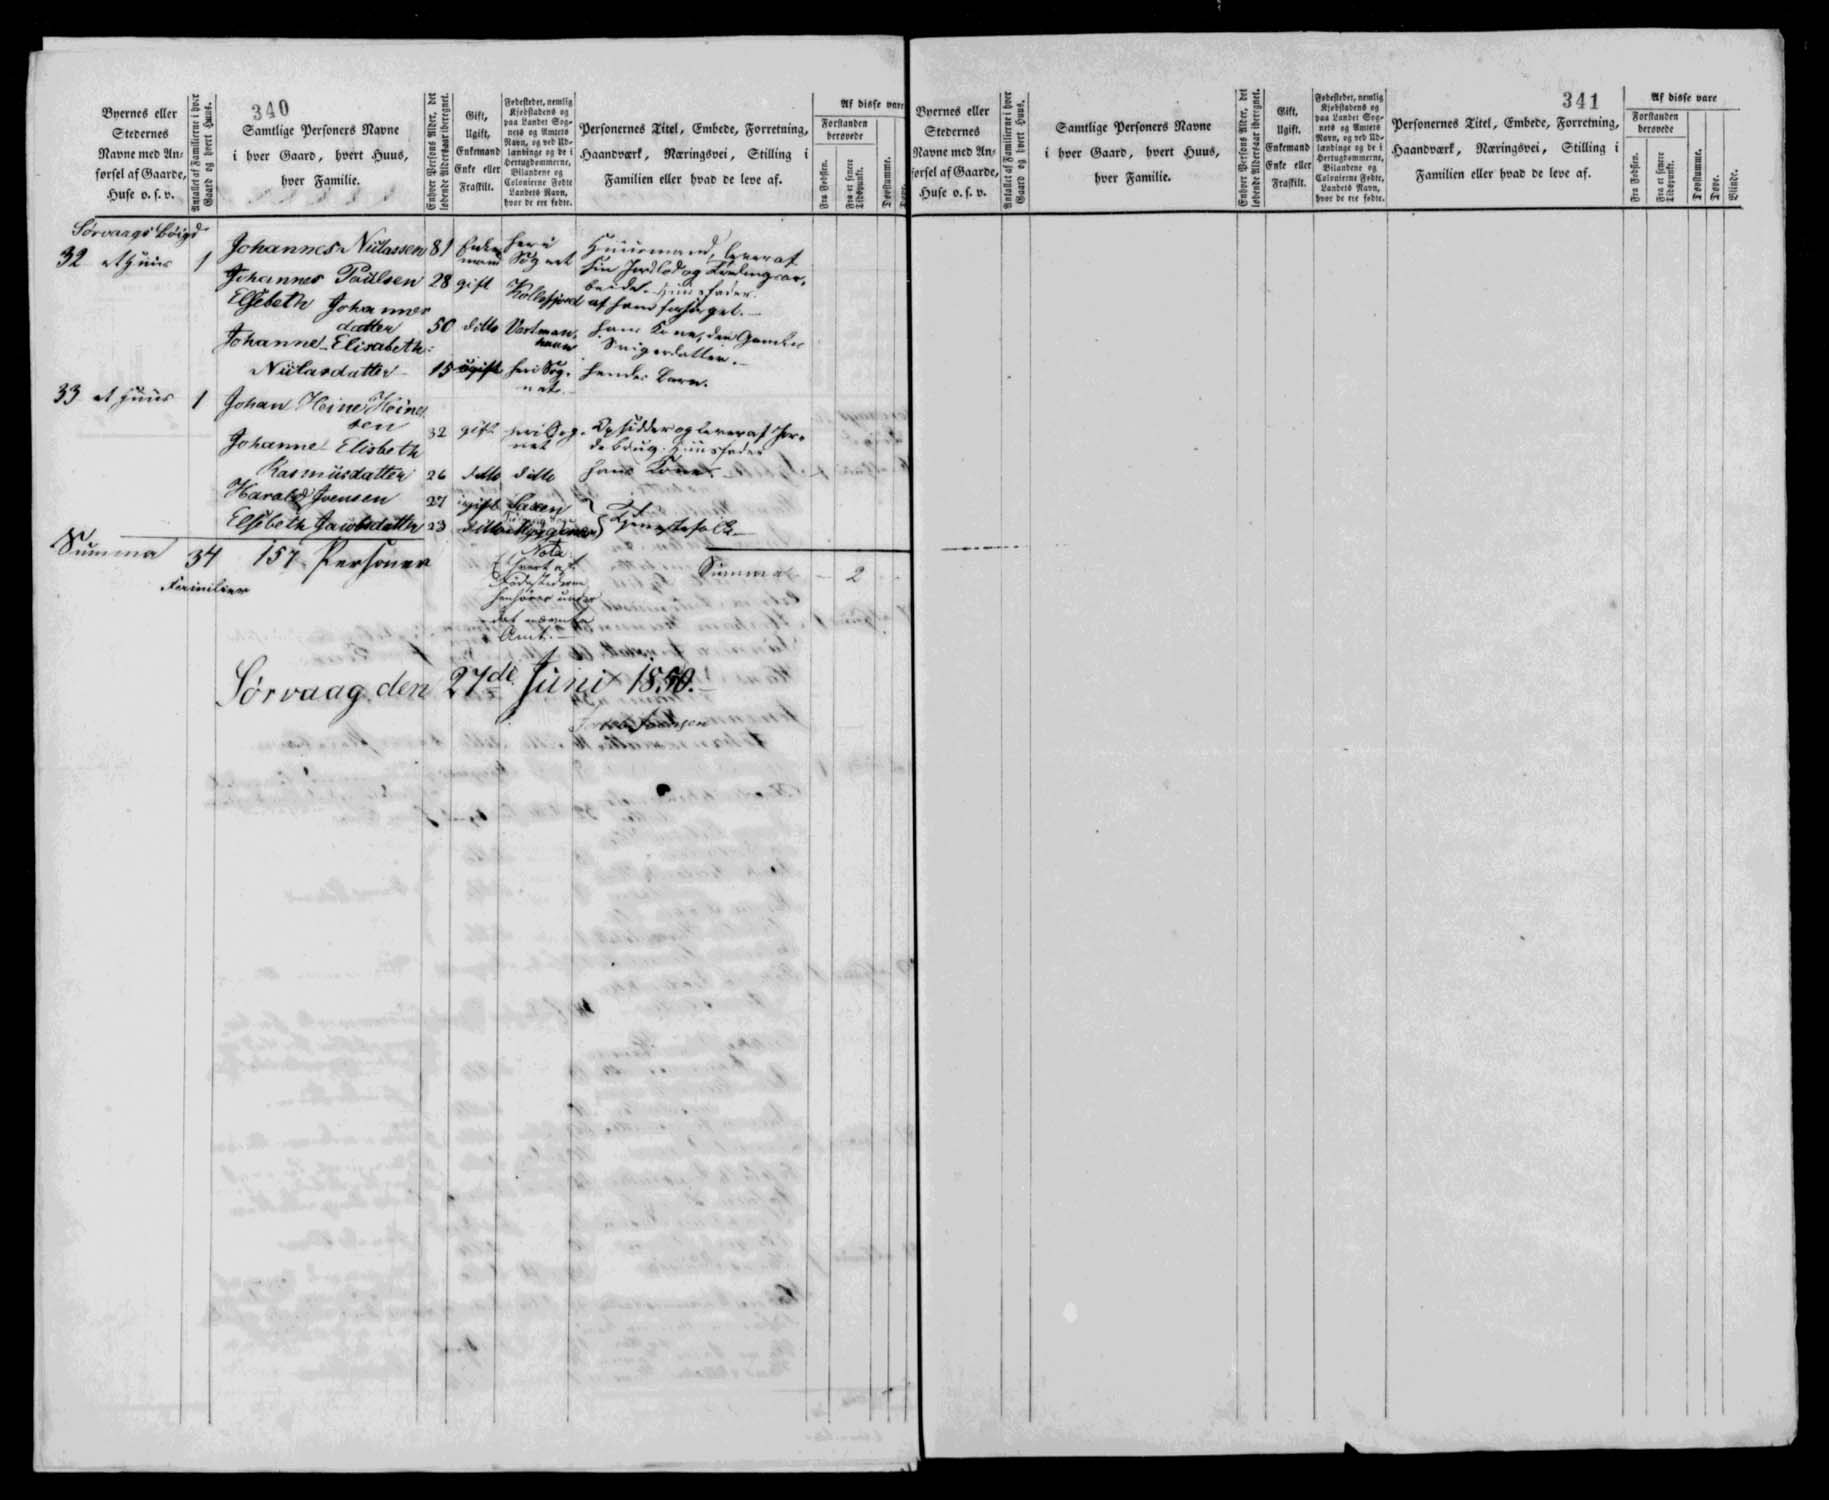 340
Byernes eller
Stedernes
Navne med An-
førsel af Gaarde,
Huse o. s. v.
Antallet af Familierne i hver
Gaard og hvert Huus.
Samtlige Personers Navne
i hver Gaard, hvert Huus,
hver Familie.
Enhver Persons Alder, det
løbende Aldersaar iberegnet.
Gift,
Ugift,
Enkemand
Enke eller
Fraskilt.
Fødestedet, nemlig
Kjøbstadens og
paa Landet Sog-
nets og Amtets
Navn, og ved Ud-
lændinge og de i
Hertugdømmerne,
Bilandene og
Colonierne Fødte
Landets Navn,
hvor de ere fødte.
Personernes Titel, Embede, Forretning,
Haandværk, Næringsvei, Stilling i
Familien eller hvad de leve af.
Af disse vare
Forstanden
berøvede
Fra Fødslen.
Fra et senere
Tidspunkt.
Døvstumme.
Døve.
Sørvaags Bøigd
32 et Huus 1 Johannes Niclassen 81 Enke-
mand her i
Sognet Huusmand, lever af
sin Jordlod og
Huusfader.
Johannes Poulsen 28 gift Kollefjord af ham forsørget.
Elsebeth Johannes
datter 50 ditto Vestman-
havn hans Kone, den Gamles
Svigerdatter.
Johanne Elisabeth
Niclasdatter 15 ugift her i Sog-
net hendes Barn.
33 et Huus 1 Johan Heine Heine
sen 32 gift her i Sog-
net Opsidder og lever af Jor-
debrug. Huusfader
Johanne Elisbeth
Rasmusdatter 26 ditto ditto hans Kone.
Harald Joensen 27 ugift Saxen
Elsebeth Jacobsdatter 23 ditto Tjenestefolk
Summa 34 157 Personer
Familier
Nota
Ethvert af
Fødestederne
henhører under
det nævnte
Amt.
Summa 2
Sørvaag den 27de Juni 1850.
341
Byernes eller
Stedernes
Navne med An-
førsel af Gaarde,
Huse o. s. v.
Antallet af Familierne i hver
Gaard og hvert Huus.
Samtlige Personers Navne
i hver Gaard, hvert Huus,
hver Familie.
Enhver Persons Alder, det
løbende Aldersaar iberegnet.
Gift,
Ugift,
Enkemand
Enke eller
Fraskilt.
Fødestedet, nemlig
Kjøbstadens og
paa Landet Sog-
nets og Amtets
Navn, og ved Ud-
lændinge og de i
Hertugdømmerne,
Bilandene og
Colonierne Fødte,
Landets Navn,
hvor de ere fødte.
Personernes Titel, Embede, Forretning,
Haandværk, Næringsvei, Stilling i
Familien eller hvad de leve af.
Af disse vare
Forstanden
berøvede
Fra Fødslen.
Fra et senere
Tidspunkt.
Døvstumme.
Døve.
Blinde.